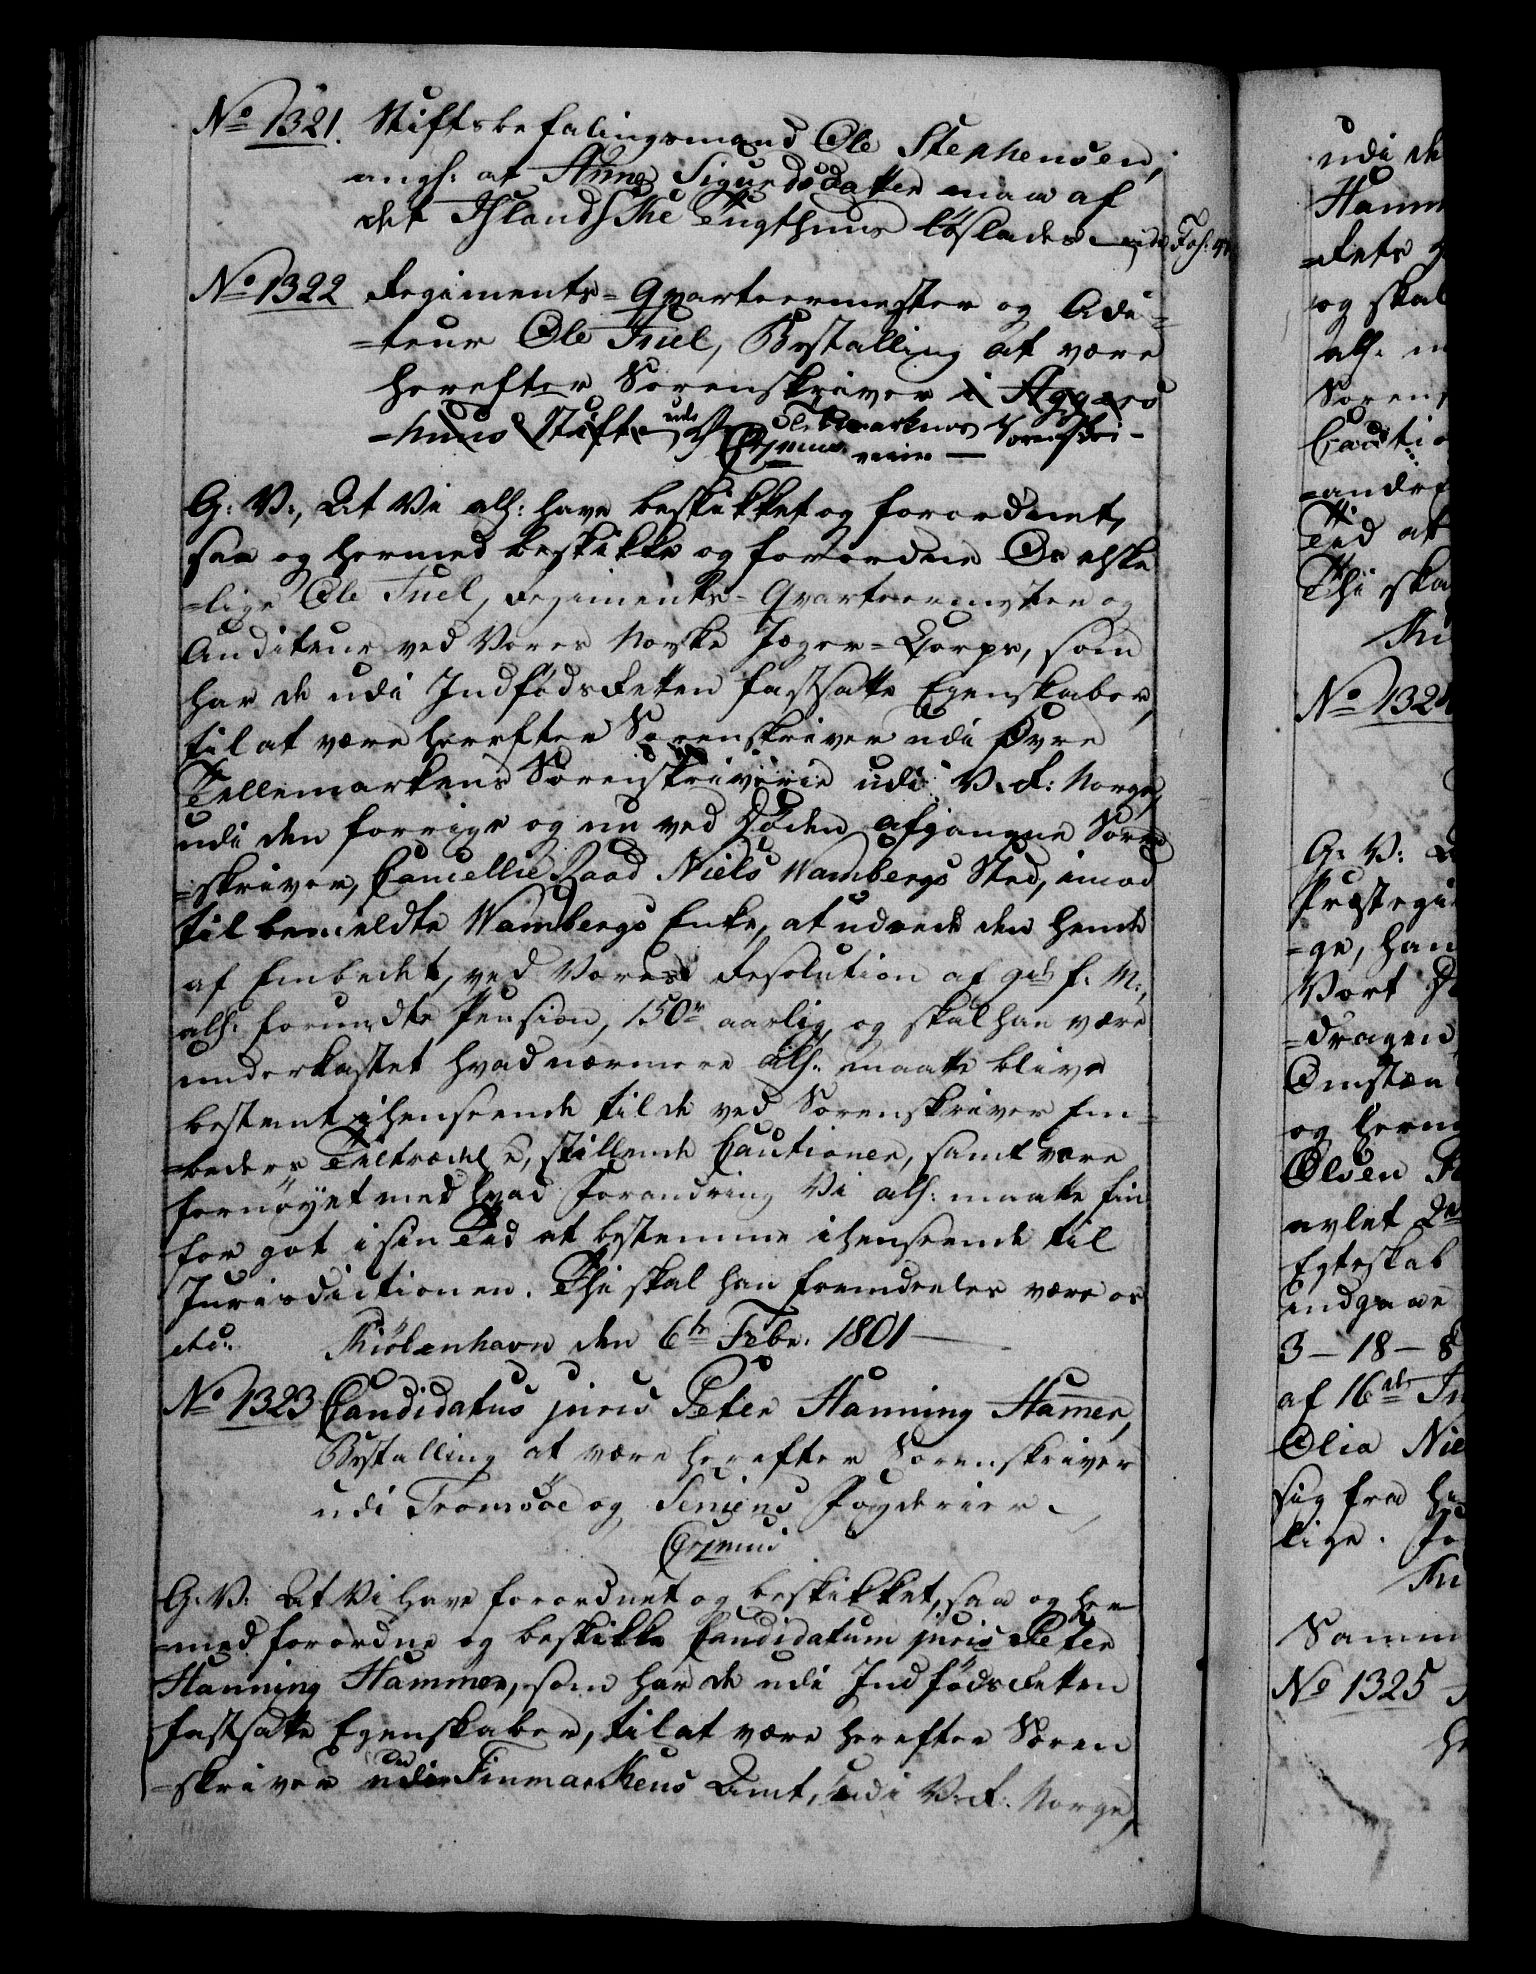 No 1321. Stiftsbefalingsmand Ole Stephensen,
angl: at Anne Sigurdsdatter maa af
det Islandske Tugthuus løslades
No 1322 Regiments-Qvarteermester og Adi-
-teur Ole Juel, Bestalling at være
herefter Sorenskriver i Aggers
-huus Stift udi Tellemarkens Sorenskri-
Expeno verie —
G: V:, At Vi alh: have beskikket og forordnet,
saa og hermed beskikke og forordne Os elske
-lige Ole Juel, Regiments-Qvarteermester og
Auditeur ved Vores Norske Jæger-Corps, som
har de udi Indføds Retten fastsatte Egenskaber,
til at være herefter Sorenskriver udi Øvre
Tellemarkens Sorenskriverie udi V. R: Norge,
udi den forrige og nu ved Døden afgangne Soren
-skriver, Cancellie Raad Niels Wambergs Sted, imod
til bemeldte Wambergs Enke, at udrede den hende
af Embedet, ved Vores Resolution af f. M.,
alh: forundte Pension, 150 rd aarlig, og skal han være
underkastet hvad nærmere alh: maatte blive
bestemt ihenseende til de ved Sorenskriver Em-
-beders Tiltrædelse, stillende Cautioner, samt være
fornøyet med hvad Forandring Vi alh: maatte fin
for got i sin Tid at bestemme ihenseende til
Jurisdictionen. Thi skal han fremdeeles være os
etc: Kiøbenhavn den 6te Febr. 1801 —
No 1323 Candidatus juris Peter Hanning Hamer,
Bestalling at være herefter Sorenskriver
udi Tromsøe og Seniens Fogderier.
G. V. At Vi have forordnet og beskikket, saa og her
-med forordne og beskikke Candidatum juris Peter
Hanning Hammer, som har de udi Indføds Retten
fastsatte Egenskaber, til at være herefter Soren
-skriver udi Finmarkens Amt, udi V. R: Norge,
udi de
Hamm
-Rets
og skal
alh. m
Soren,
Cautio
-andre
Tid at
Thi ska
No 1324
G. V:
Præstegi
-ge, han
Vort
-dragen
Omstæn
og herm
Olsen
avlet 2de
Egteskab
indgaae
3 – 18 – 8
af 16de
Olia Nie
sig fra
lige.
Samm
No 1325